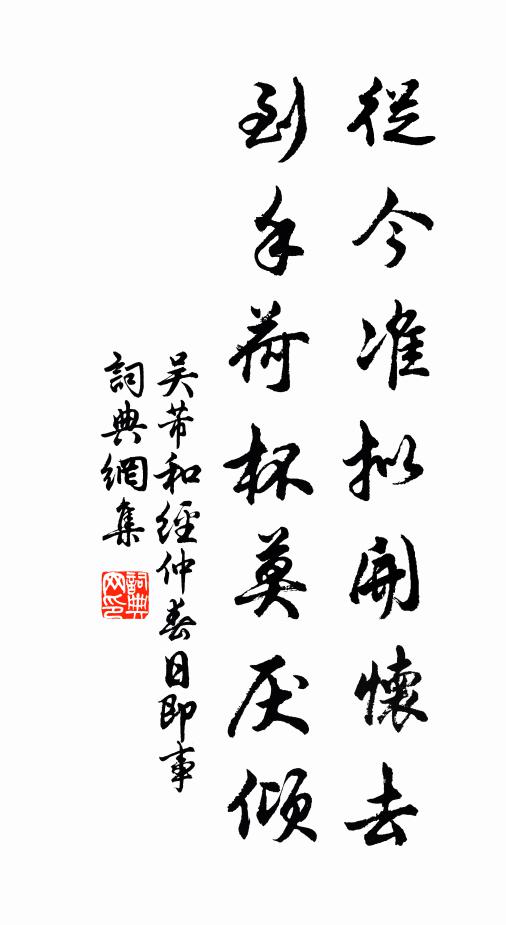 從今准拟開懷去
到手荷杯莫厌傾
吴芾和經仲春日即事
詞典網集
詞典网印